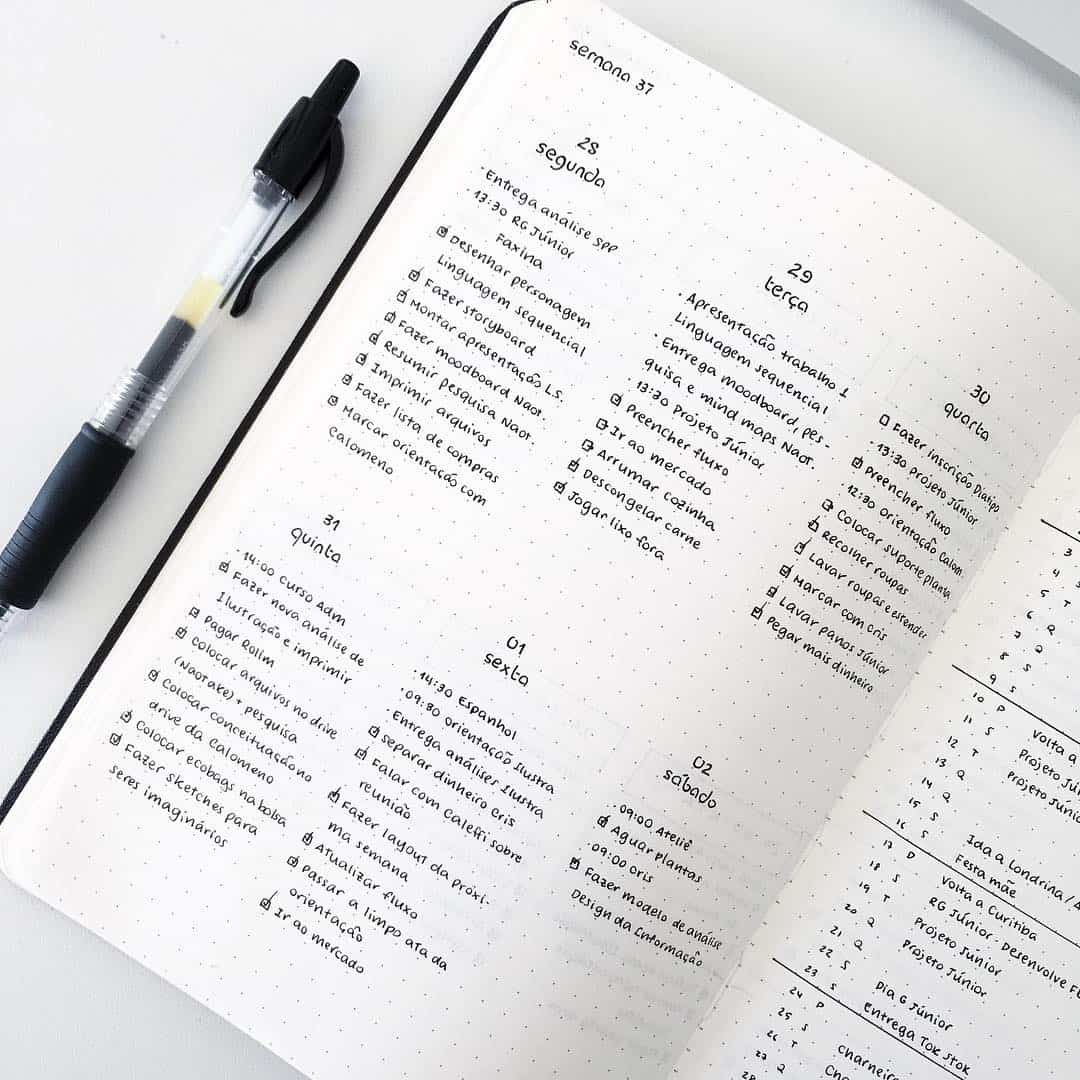 semana 37
28
segunda
· Entrega análise SPP
· 13:30 RG Júnior
Faxina
Desenhar personagem
Linguagem sequencial
Fazer storyboard
Montar apresentação L.S.
Fazer moodboard Naot.
Resumir pesquisa Naot.
Imprimir arquivos
Fazer lista de compras
Marcar orientação com
Calomeno
29
terça
· Apresentação trabalho 1
Linguagem sequencial
· Entrega moodboard, pes-
quisa e mind maps Naot.
· 13:30 Projeto Júnior
Preencher fluxo
Ir ao mercado
Arrumar cozinha
Descongelar carne
Jogar lixo fora
30
quarta
Fazer inscrição Diatipo
· 13:30 Projeto Júnior
Preencher fluxo
· 12:30 orientação Calom.
Colocar suporte planta
Recolher roupas
Lavar roupas e estender
Marcar com cris
Lavar panos Júnior
Pegar mais dinheiro
31
quinta
· 14:00 Curso Adm
Fazer nova análise de
Ilustração e imprimir
Pagar Rollm
Colocar arquivos no drive
(Naotake) + pesquisa
Colocar conceituação no
drive da Calomeno
Colocar ecobags na bolsa
Fazer sketches para
seres imaginários
01
sexta
· 14:30 Espanhol
· 09:30 orientação Ilustra
· Entrega análises Ilustra
Separar dinheiro Cris
Falar com Caleffi sobre
reunião
Fazer layout da próxi-
ma semana
Atualizar fluxo
Passar a limpo ata da
orientação
Ir ao mercado
02
sábado
· 09:00 Ateliê
Aguar plantas
· 09:00 cris
Fazer modelo de análise
Design da Informação
3
4 S
5 T
6 Q
7 Q
8 S
9 S
10 D Volta a
11 S Projeto Jú
12 T Projeto Júnio
13 Q
14 Q
15 S Ida a Londrina /
16 S Festa mãe
17 D Volta a Curitiba
18 S RG Júnior · Desenvolve
19 T Projeto Júnior
20 Q Projeto Júnior
21 Q
22 S Dia G Júnior
23 S Entrega Tok Stok
24 D
25 S charneir
26 T
27 Q
28